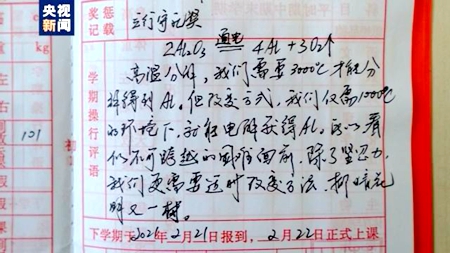 央视新闻
奖惩记载
2Al₂O₃ 通电 4Al+3O₂↑
学期操行评语
高温分解,我们需要3000℃才能分
解得到Al。但改变方式,我们仅需1000℃
的环境下,就能电解获得Al。所以看
似不可跨越的困难面前,除了坚力,
我们更需要适时改变方法,柳暗花
明又一村。
下学期于 年2月21日报到,2月22日正式上课
kg
右
101